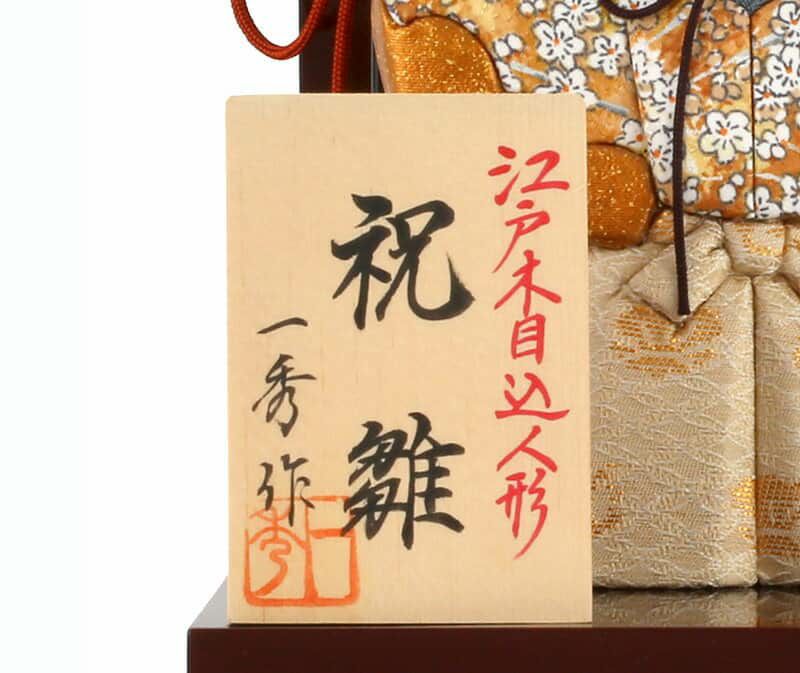 江戸木目込人形
祝雛
一秀作
一秀